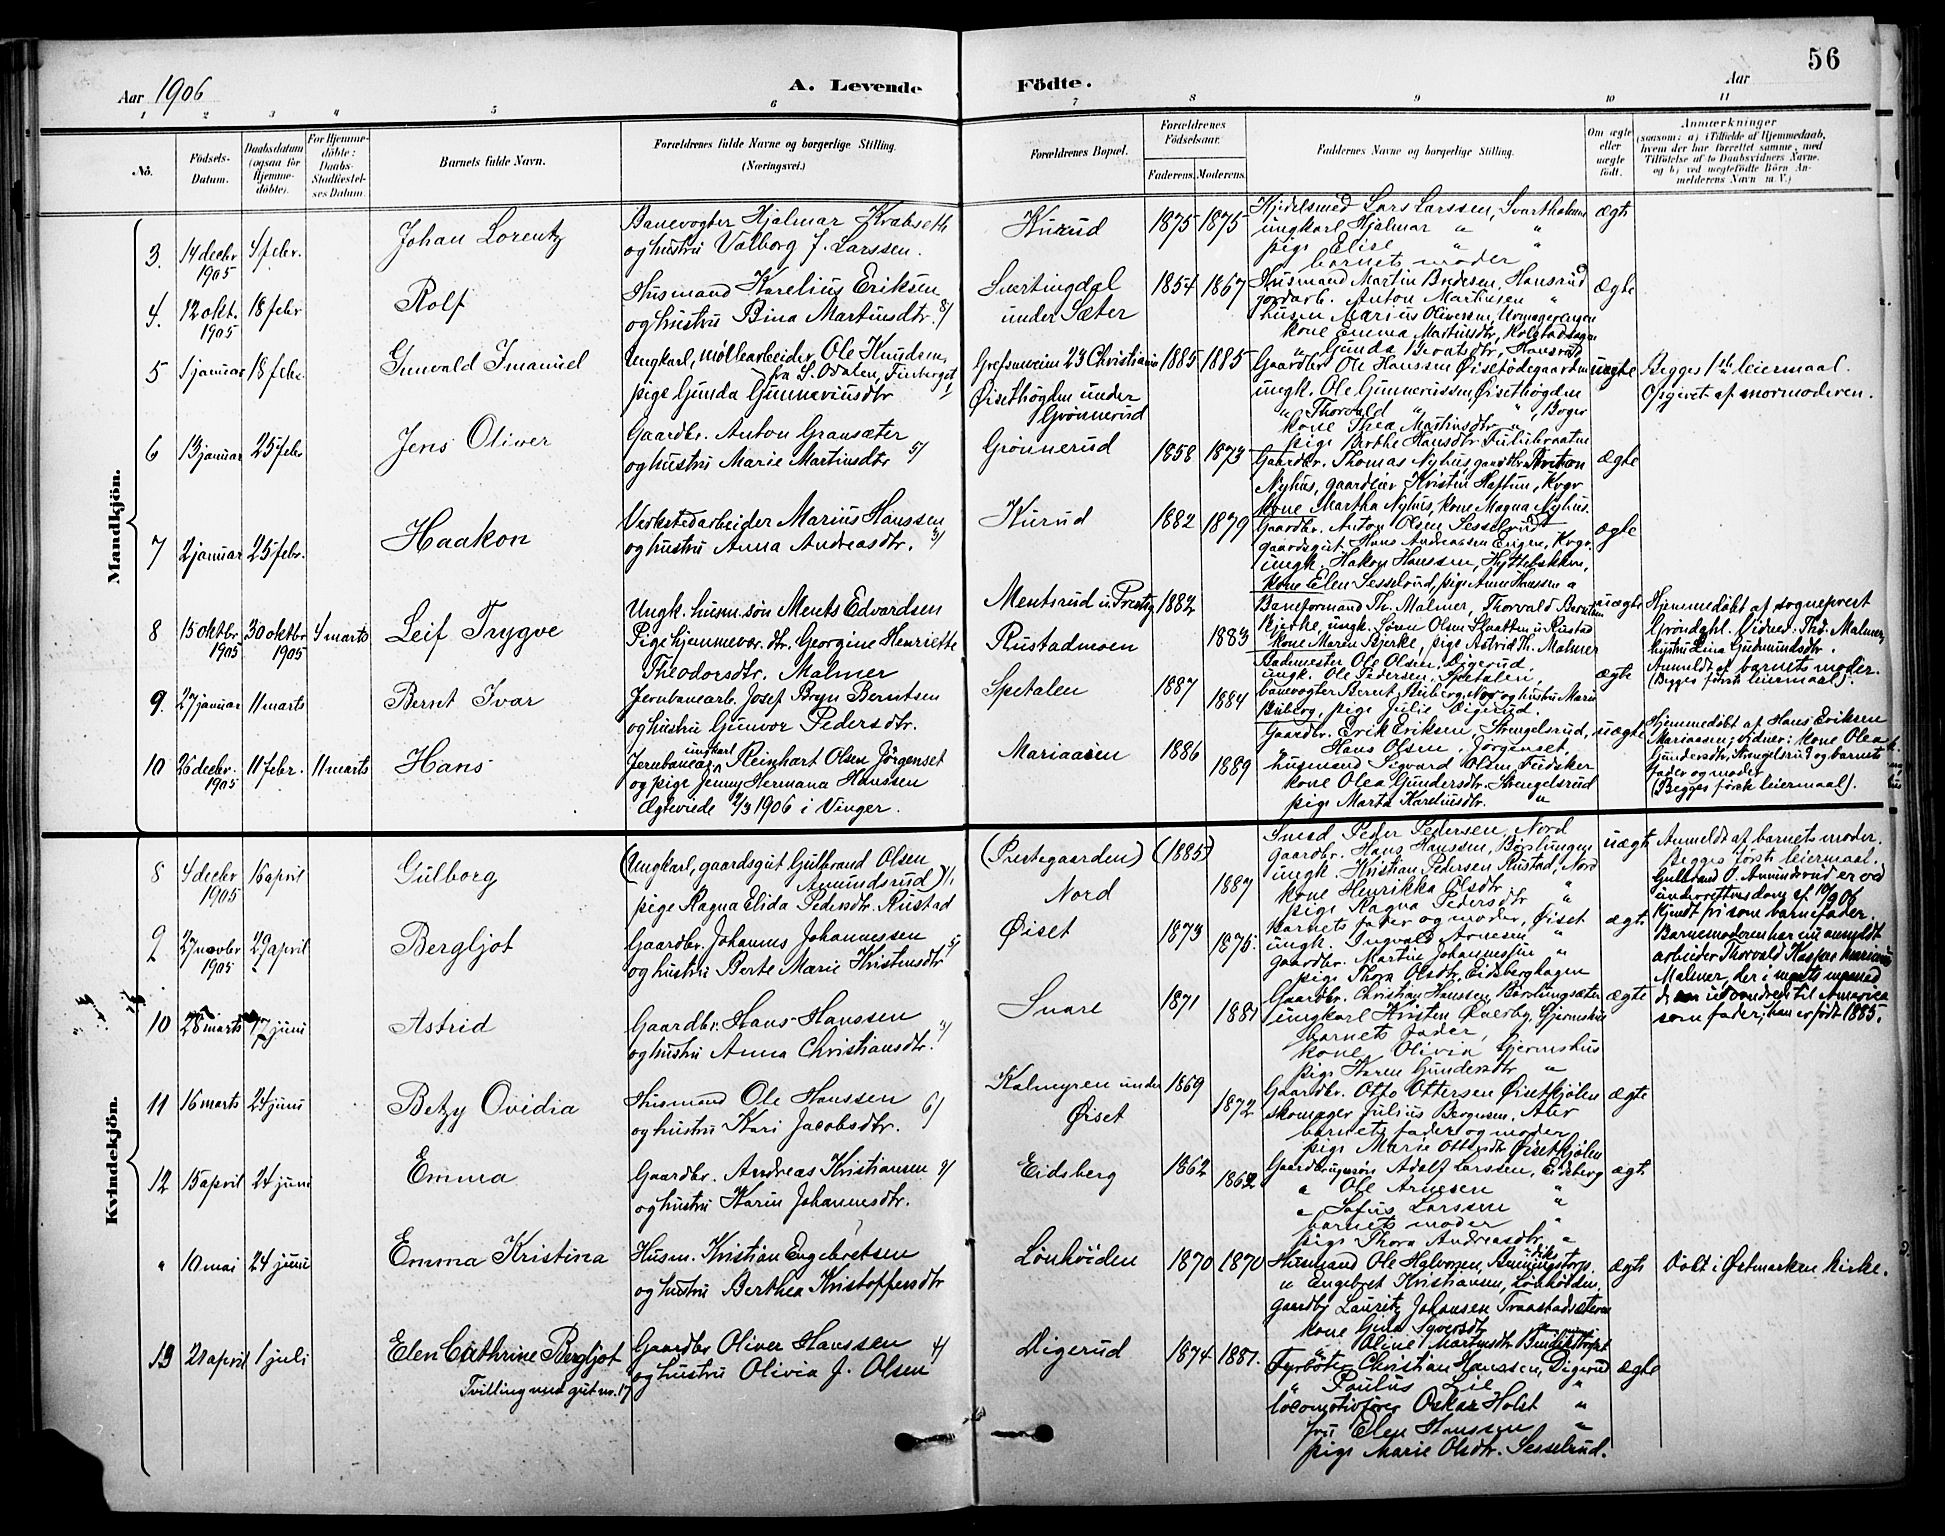 56
Aar 1906
A. Levende Födte.
Aar
1 2 3 4 5 6 7 8 9 10 11
No.
Födsels-Datum.
Daabsdatum (ogsaa for Hjemme-döbte).
For Hjemme-döbte: Daabs-Stadfæstel-ses Datum.
Barnets fulde Navn.
Forældrenes fulde Navne og borgerlige Stilling. (Næringsvei.)
Forældrenes Bopæl.
Forældrenes Födselsaar.
Faderens. Moderens.
Faddernes Navne og borgerlige Stilling.
Om ægte eller uægte født.
Anmærkninger
(saasom: a) i Tilfælde af Hjemmedaab, hvem der har forrettet samme, med Tilföielse af to Daabsvidners Navne. og b) ved uægtefödte Börn An-melderens Navn m. V.)
Mandkjön.
3. 14 decbr 1905 4 febr. Johan Lorentz
Banevogter Hjalmar Krabseth
og hustru Valborg J. Larssen.
Kurud 1875 1875
Kjedelsmed Lars Larssen, Svartholmen
ungkarl Hjalmar " "
pige Elise " "
barnets moder
ægte
4. 12 okt. 1905 18 febr Rolf
Husmand Karelius Eriksen
og hustru Bina Martinsdtr. 8/
Svertingdal
under Sæter
1854 1867
Husmand Martin Hansrud
jordarb. Anton Martinsen "
husm Marius Oliversen,
kone Emma Martinsdtr,
" Gunda Hansrud
ægte
5 1 januar 18 febr. Gunvald Imanuel
Ungkarl, møllearbeider Ole Knudsen,
fra S. Odalen,
pige Gunda Gunneriusdtr
Grefsenveien 23 Christiania
Øisethøgden under
Grønnerud
1885 1885
Gaardbr Ole Hanssen Øisetødegaarden
ungk. Ole Gunnerussen, Øisethøgden
" Thorvald " " , Boger
kone Thea Martinsdtr "
pige Berthe Hansdtr
uægte
Begges 1ste leiermaal.
Opgivet af mormoderen.
6 13 januar 25 febr Jens Oliver
Gaardbr. Anton Gransæter
og hustru Marie Martinsdtr 5/
Grønnerud 1858 1873
Gaardbr. Thomas Nyhus, gaardbr.
Nyhus, gaardeier Kristin Haftun, Kvgr
kone Martha Nyhus, kone Magna Nyhus.
ægte
7 2 januar 25 febr. Haakon
Verkstedarbeider Marius Hanssen
og hustru Anna Andreasdtr. 3/
Kurud 1882 1879
Gaardbr. Anton Olsen Sesselrud
gaardsgut. Hans Andreassen Eugen, Kvgr.
ungk. Hakon Hanssen, Hyttebakken,
kone Elen Sesselrud, pige Anne Hanssen "
ægte
8 15 oktbr 1905 30 oktbr 1905 4 marts Leif Trygve
Ungk. husm. søn Ments Edvardsen
Pige hjemmevær. dtr. Georgine Henriette
Theodorsdtr. Malmer
Mentsrud u. Prestg
Rustadmoen
1882 1883
Baneformand Th. Malmer, Thorvald Berntsen
Bjerke, ungk. Søren Olsen Skatten u. Rustad
kone Maren Bjerke, pige Astrid Th. Malmer
uægte
Hjemmedøbt af sogneprest
Grøndahl. Vidner. Thd. Malmer,
hustru Lina Gudmundsdtr.
Anmeldt af barnets moder.
(Begges første leiermaal).
9. 27 januar 11 marts Bernt Ivar
Jernbanearb. Josef Bryn Berntsen
og hustru Gunvor Pedersdtr.
Spetalen 1887 1884
Bademester Ole Olsen, Digerud.
ungk. Ole Pedersen, Spetalen,
banevogter Bernt og hustru Marie
pige Julie Digerud.
ægte
10 26 decbr. 1905 11 febr. 11 marts Hans
ungkarl
Jernbanearb Reinhart Olsen Jörgenset
og pige Jenny Hermana Hanssen
Ægteviede 11/3 1906 i Vinger.
Mariaasen 1886 1889
Gaardbr. Erik Eriksen, Strengelsrud,
Hans Olsen, Jørgenset,
husmand Segvard Olsen, Feidsker
kone Olea Gundersdtr. Strengelsrud
pige Marta Kareliusdtr. "
uægte
Hjemmedøbt af Hans Eriksen
Mariaasen; vidner: kone Olea
Gundersdtr, Strengelsrud og barnets
fader og moder
(Begges første leiermaal).
Kvindekjön.
8 4 decbr 1905 16 april Gulborg
(Ungkarl, gaardsgut Gulbrand Olsen
Amundsrud) 1/1
pige Ragna Elida Pedersdtr. Rustad
(Prestegaarden)
Nord
(1885) 1887
Smed Peder Pedersen, Nord
Gaardbr. Hans Hanssen, Børslungen
ungk. Kristian Pedersen Rustad, Nord
kone Henrikka Olsdtr "
pige Ragna Pedersdtr "
uægte
Anmeldt af barnets moder.
Begges første leiermaal.
Gulbrand O. Amundsrud er ved
underrettens dom af 10/9 06
kjendt fri som barnefader.
Barnemoderen har nu anmeldt
arbeider Thorvald Kaspar
Malmer, der i marts maaned
d. aar udvandrede til Amerika
som fader; han er født 1885.
9 27 novbr 1905 29 april Bergljot
Gaardbr. Johannes Johannessen
og hustru Berte Marie Kristensdtr 5/
Øiset 1873 1875
Barnets fader og moder, Øiset
ungk. Ingvald Arnesen "
gaardbr. Martin Johannessen "
pige Thora Olsdtr, Eidsberghagen
ægte
10 28 marts 17 juni Astrid
Gaardbr. Hans Hanssen
og hustru Anna Christiansdtr.
Snare 1871 1881
Gaardbr. Christian Hanssen, Børslungsæter
ungkarl Kristen Øverby, Gjermshus
barnets fader,
kone Olivia Gjermshus
pige Karen Gundersdtr "
ægte
11 16 marts 24 juni Betzy Ovidia
Husmand Ole Hanssen
og hustru Kari Jacobsdtr. 6/
Kalmyren under
Øiset
1869 1872
Gaardbr. Otto Ottersen Øisetkjølen
skomager Julius Bergersen, Aber
barnets fader og moder
pige Marie Ottersdtr Øisetkjølen
ægte
12 15 april 24 juni Emma
Gaardbr. Andreas Kristiansen 9/
og hustru Karin Johannesdtr.
Eidsberg 1862 1862
Gaardbrugersøn Adolf Larssen, Eidsberg
" Ole Arnesen "
" Sofus Larssen "
barnets moder "
pige Thora Andreasdtr "
ægte
" 10 mai 24 juni Emma Kristina
Husm. Kristian Engebretsen
og hustru Berthea Kristoffersdtr
Lønhøiden 1870 1870
Husmand Ole Halvorsen,
" Engebret Kristiansen, Lønhøiden,
gaardbr Lauritz Johansen
kone Gina Syversdtr
" Oline Martinsdtr
ægte
Døbt i Østmarken kirke.
13 21 april 1 juli Elen Cathrine Bergljot
Tvilling med gut no. 17
Gaardbr Oliver Hanssen 4/
og hustru Olivia J. Olsen
Digerud 1874 1881.
Fyrbøter Christian Hanssen, Digerud
" Paulus Lie "
locomotivfører Oskar Holst "
fru Elen Hanssen "
pige Marie Olsdtr. Sesselrud.
ægte